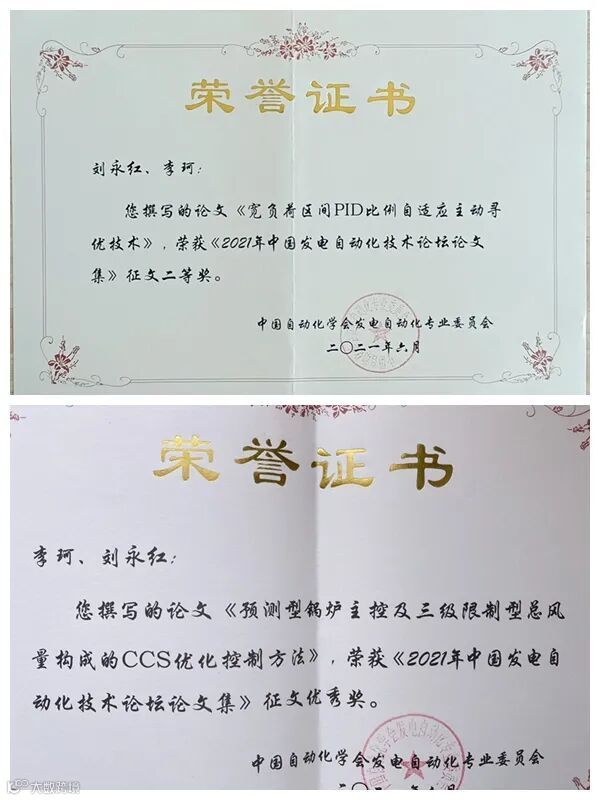 荣誉证书
刘永红、李珂：
您撰写的论文《宽负荷区间PID比例自适应主动寻
优技术》，荣获《2021年中国发电自动化技术论坛论文
集》征文二等奖。
中国自动化学会发电自动化专业委员会
二〇二一年六月
荣誉证书
李珂、刘永红：
您撰写的论文《预测型锅炉主控及三级限制型总风
量构成的CCS优化控制方法》，荣获《2021年中国发电自
动化技术论坛论文集》征文优秀奖。
中国自动化学会发电自动化专业委员会
大数跨境